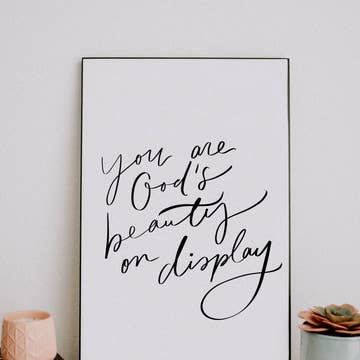 you are
God's
beauty
on display